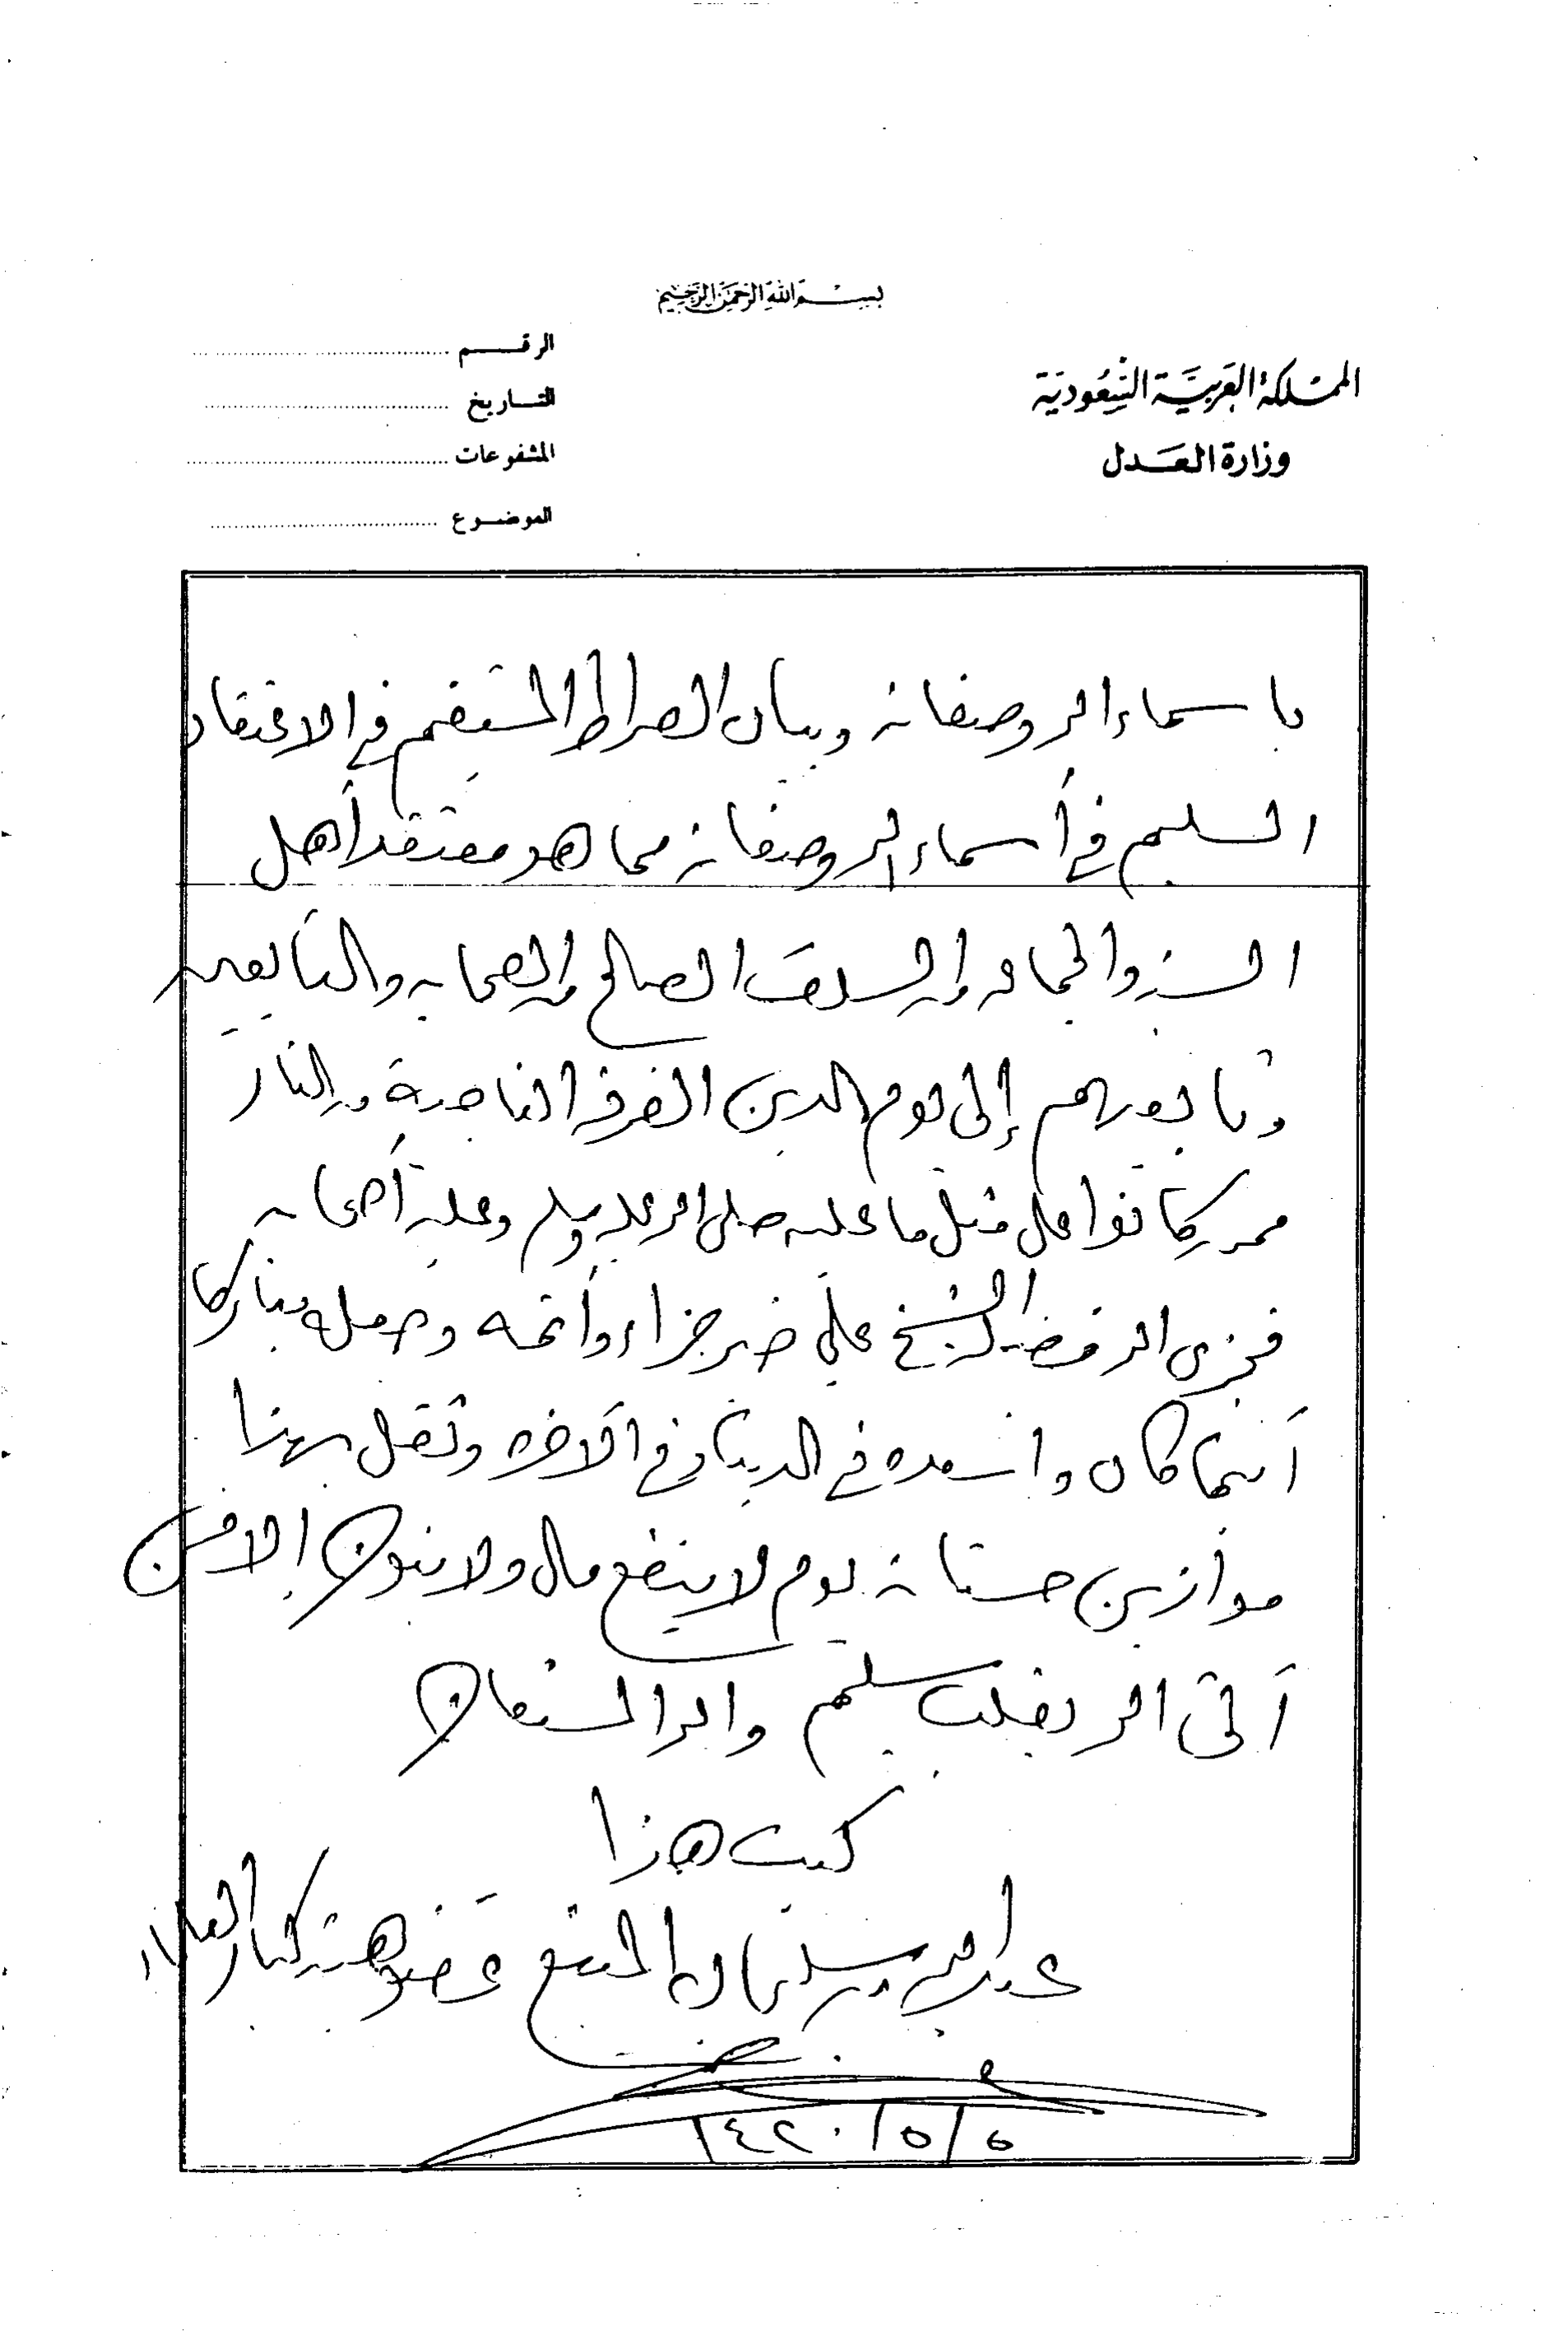 بسم الله الرحمن الرحيم
المملكة العربية السعودية
وزارة العدل
الرقم
التاريخ
المشفوعات
الموضوع
بأسماء الله وصفاته وبيان الصراط المستقيم في الاعتقاد
السليم في أسماء الله وصفاته مما هو معتقد أهل
السنة والجماعة من السلف الصالح من الصحابة والتابعين
وتابعيهم إلى يوم الدين الفرقة الناجية من النار
ممن كانوا على مثل ما عليه صلى الله عليه وسلم وعليه أصحابه
فجزى الله فضيلة الشيخ علي خير جزاء وأتمه وجعله مباركا
أينما كان وأسعده في الدنيا وفي الآخرة وثقل بهذا
موازين حسناته يوم لا ينفع مال ولا بنون إلا من
أتى الله بقلب سليم والله المستعان
كتب هذا
عبد الله بن سليمان المنيع عضو هيئة كبار العلماء
٥/٥/١٤٢٠